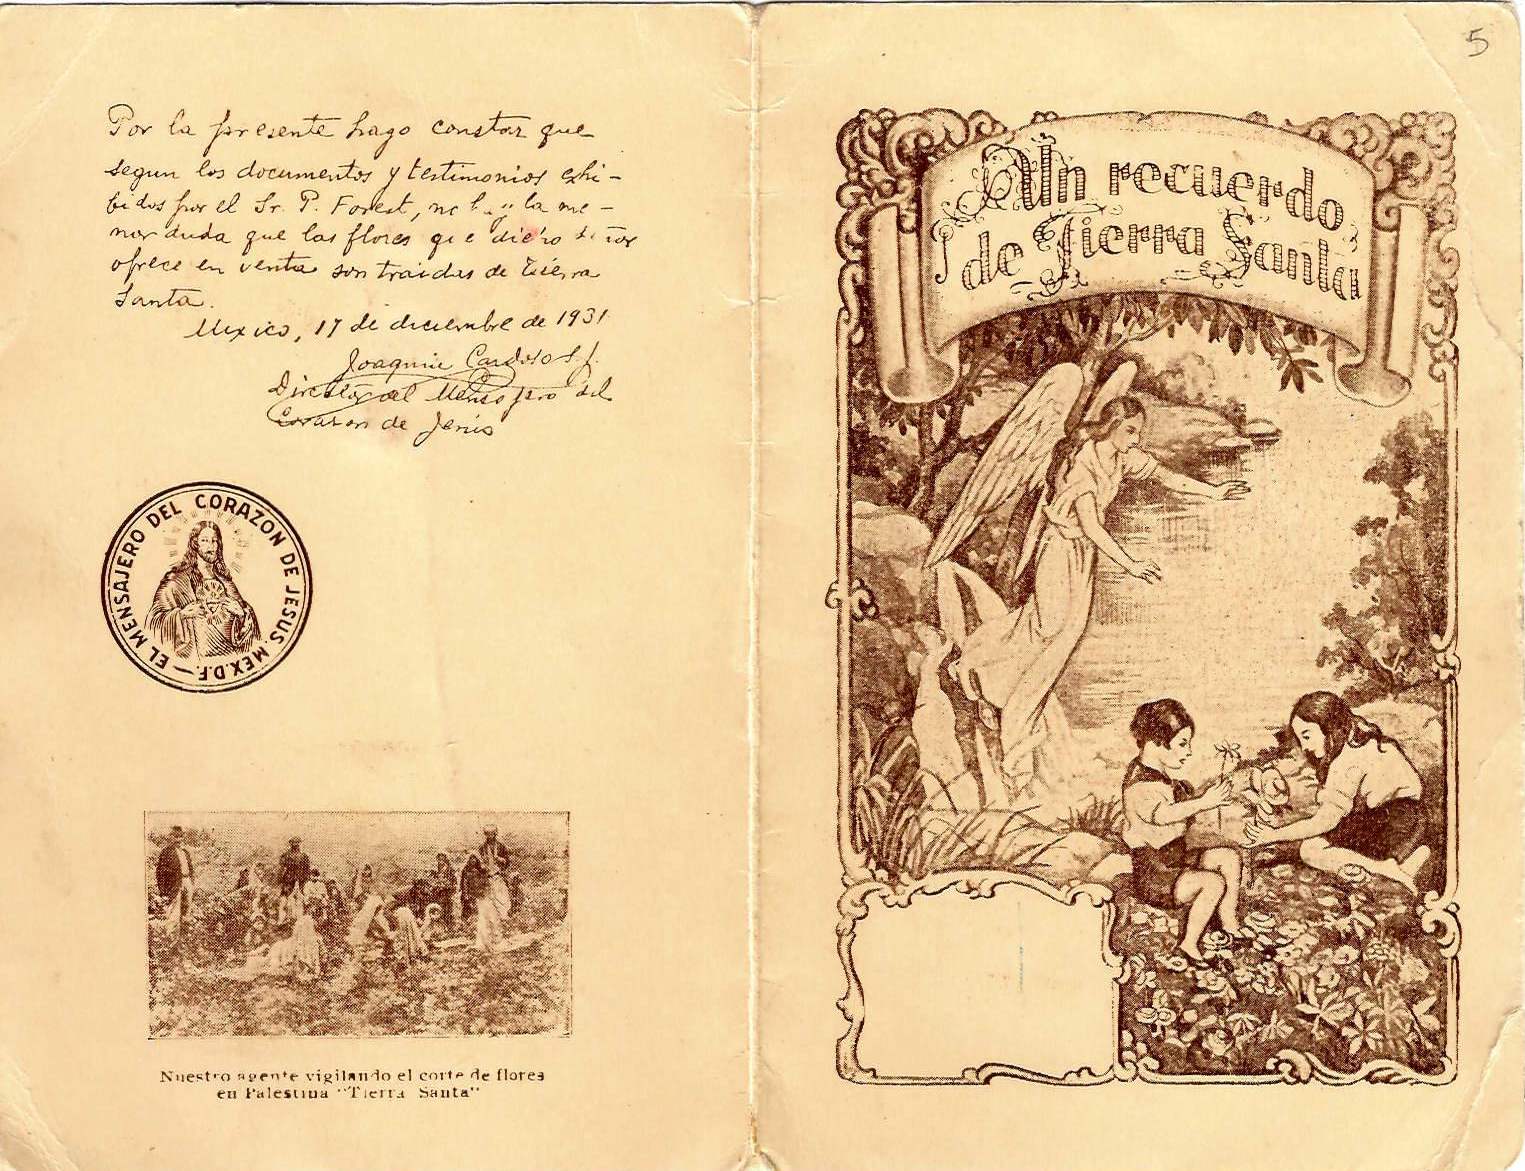 Por la presente hago constar que
segun los documentos y testimonios exhi-
bidos por el Sr. P. Forest, no hay la me-
nor duda que las flores que dicho señor
ofrece en venta son traidas de Tierra
Santa.
Mexico, 17 de diciembre de 1931
Joaquin Cardoso S. J.
Director del Mensajero del
Corazon de Jesús
EL MENSAJERO DEL CORAZON DE JESUS. MEX.D.F.
Nuestro agente vigilando el corte de flores
en Palestina "Tierra Santa"
5
Un recuerdo
de Tierra Santa